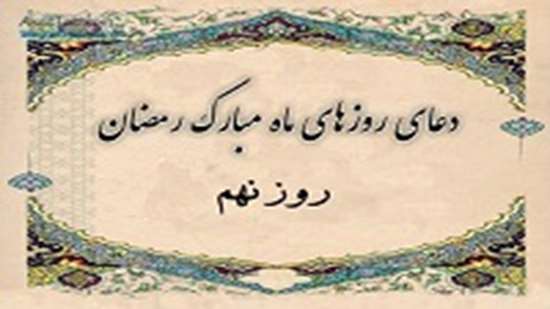 دعای روزهای ماه مبارک رمضان
روز نهم